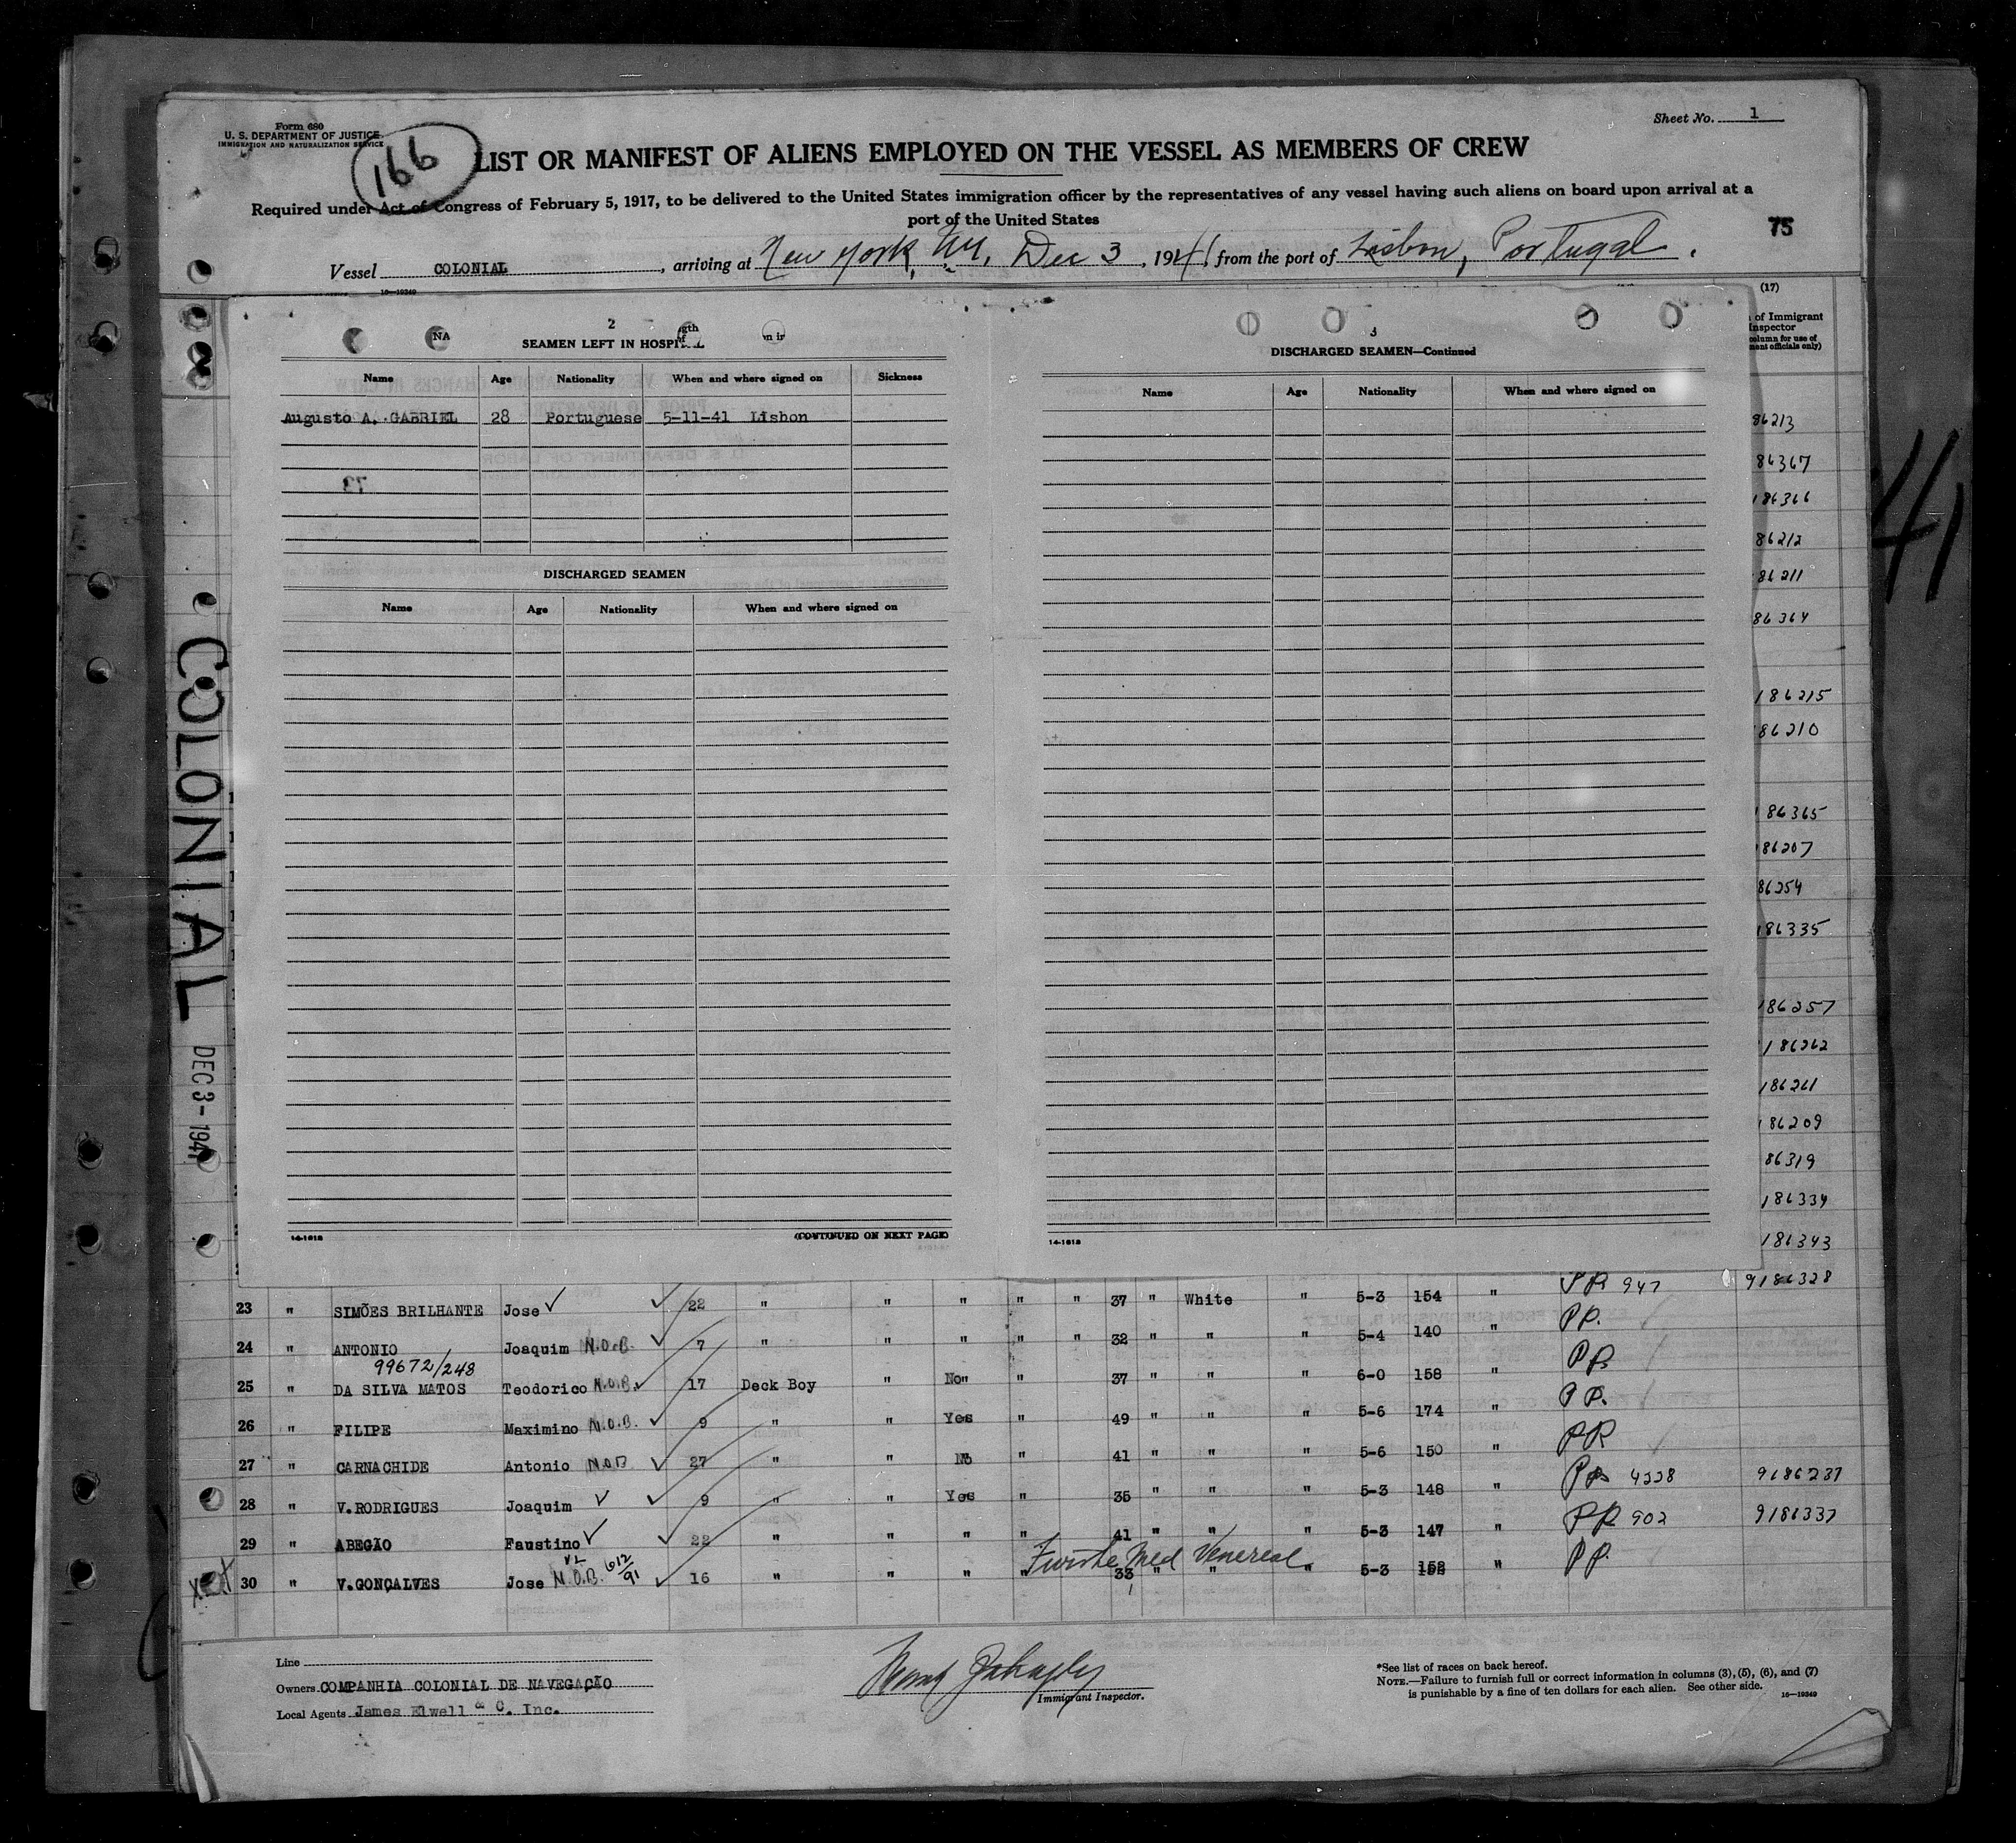 Form 680
U. S. DEPARTMENT OF JUSTICE
IMMIGRATION AND NATURALIZATION SERVICE
166
Sheet No. 1
LIST OR MANIFEST OF ALIENS EMPLOYED ON THE VESSEL AS MEMBERS OF CREW
Required under Act of Congress of February 5, 1917, to be delivered to the United States immigration officer by the representatives of any vessel having such aliens on board upon arrival at a
port of the United States
75
Vessel COLONIAL, arriving at New York, NY, Dec 3, 1941, from the port of Lisbon, Portugal.
16—19349
(17)
of Immigrant
Inspector
column for use of
ment officials only)
NA
2
SEAMEN LEFT IN HOSPI
Name Age Nationality When and where signed on Sickness
Augusto A. GABRIEL 28 Portuguese 5-11-41 Lisbon
73
DISCHARGED SEAMEN
Name Age Nationality When and where signed on
14-1618
(CONTINUED ON NEXT PAGE)
3
DISCHARGED SEAMEN—Continued
Name Age Nationality When and where signed on
14-1618
86213
86367
186366
86212
86211
86364
186215
86210
186365
186207
86254
186335
186257
186262
186261
186209
86319
186334
186343
41
COLONIAL
DEC 3-1941
23 " SIMÕES BRILHANTE Jose 22 " " " " " 37 " White " 5-3 154 " PP 947 9186328
24 " ANTONIO Joaquim N.O.B. 7 " " " " " 32 " " " 5-4 140 " PP.
99672/248
25 " DA SILVA MATOS Teodorico N.O.B. 17 Deck Boy " No" " 37 " " " 6-0 158 " PP
26 " FILIPE Maximino N.O.B. 9 " " Yes " 49 " " " 5-6 174 " PP.
27 " CARNACHIDE Antonio N.O.B 27 " " No " 41 " " " 5-6 150 " PP
28 " V.RODRIGUES Joaquim 9 " " Yes " 35 " " " 5-3 148 " PP 4228 9186237
29 " ABEGÃO Faustino 22 " " " " 41 " " " 5-3 147 " PP 902 9186337
Med Venereal
30 " V.GONÇALVES Jose N.O.B. 612/91 16 " " " " 33 " " " 5-3 158 " PP.
Line
Owners COMPANHIA COLONIAL DE NAVEGAÇÃO
Local Agents James Elwell & C. Inc.
Immigrant Inspector.
*See list of races on back hereof.
NOTE.—Failure to furnish full or correct information in columns (3), (5), (6), and (7)
is punishable by a fine of ten dollars for each alien. See other side. 16—19349